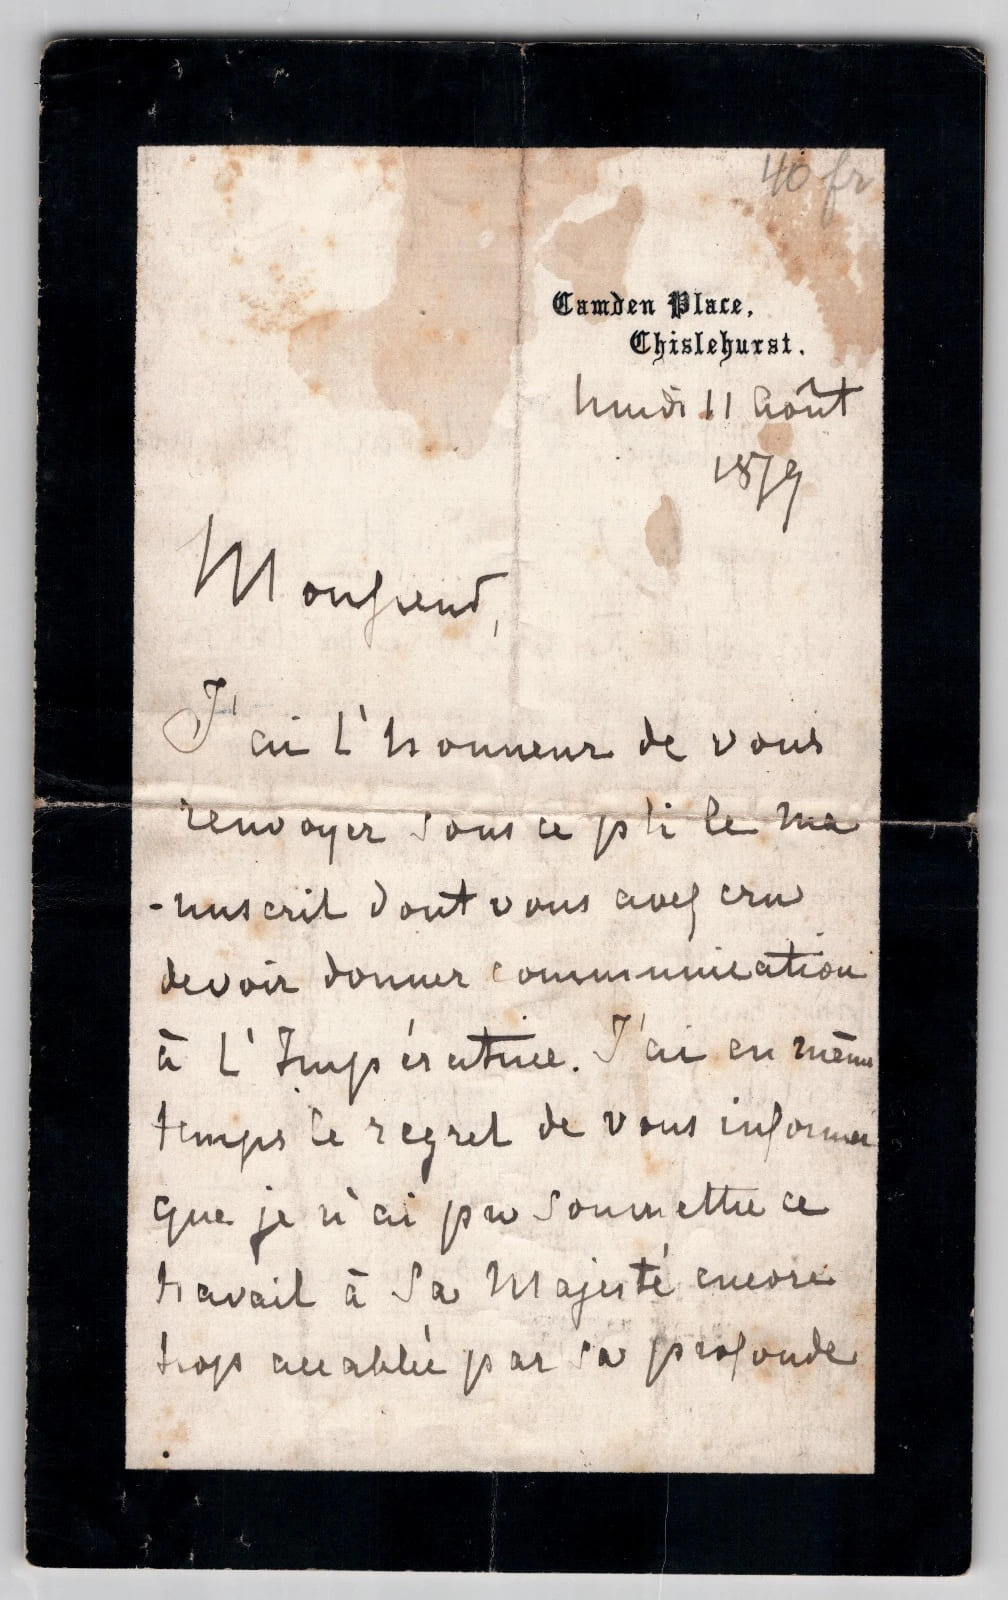 40 fr
Camden Place,
Chislehurst.
lundi 11 Août
1879
Monsieur,
J'ai l'honneur de vous
renvoyer sous ce pli le ma
-nuscrit dont vous avez cru
devoir donner communication
à l'Impératrice. J'ai en même
temps le regret de vous informer
que je n'ai pu soumettre ce
travail à Sa Majesté encore
trop accablée par sa profonde